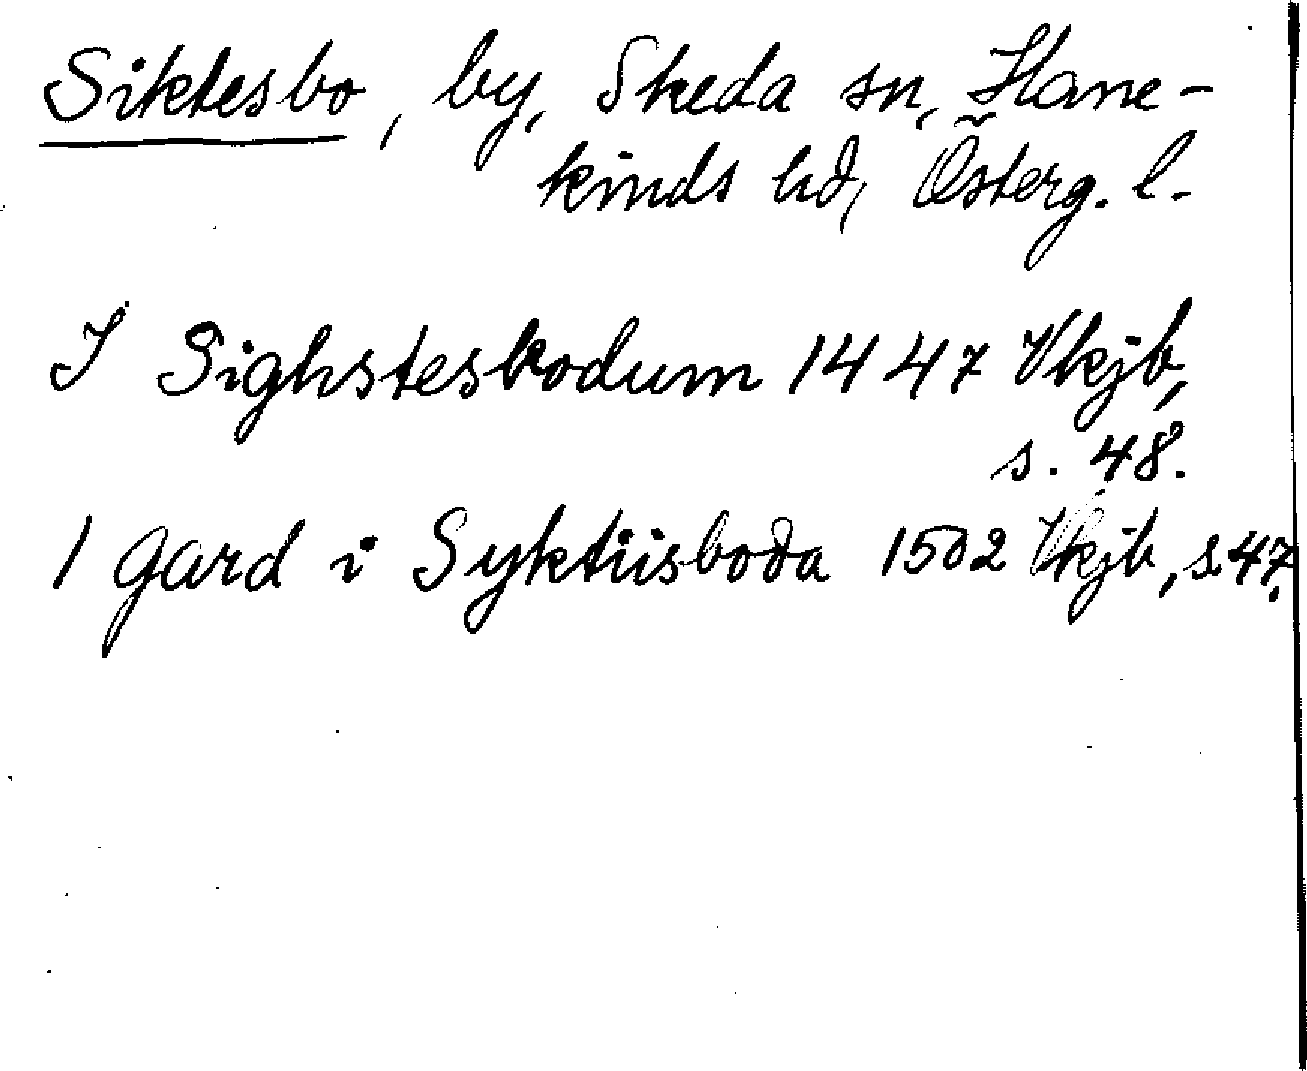 Siktesbo, by, Skeda sn, Hane-
kinds hd, Österg. l.
I Sighstesbodum 1447 Vkjb,
s. 48.
1 gard i Syktiisboda 1502 Vkjb, s. 47.